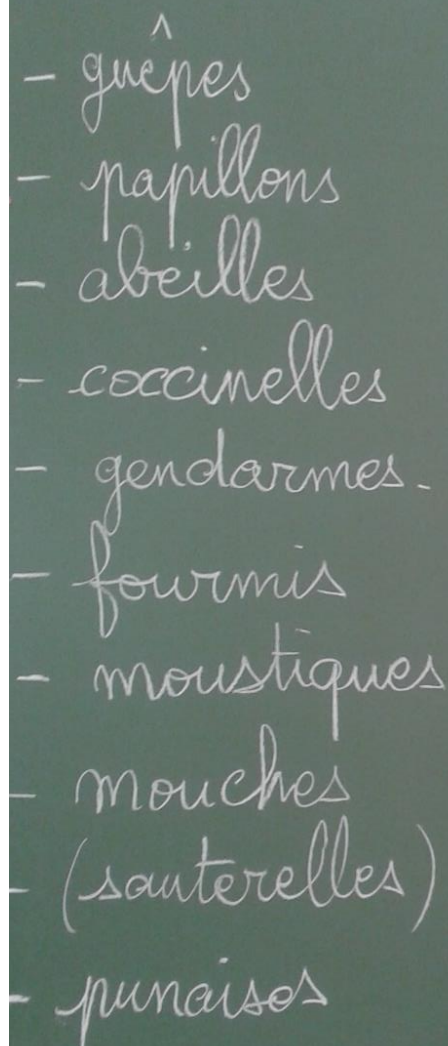 - guêpes
- papillons
- abeilles
- coccinelles
- gendarmes.
- fourmis
- moustiques
- mouches
- (sauterelles)
- punaises